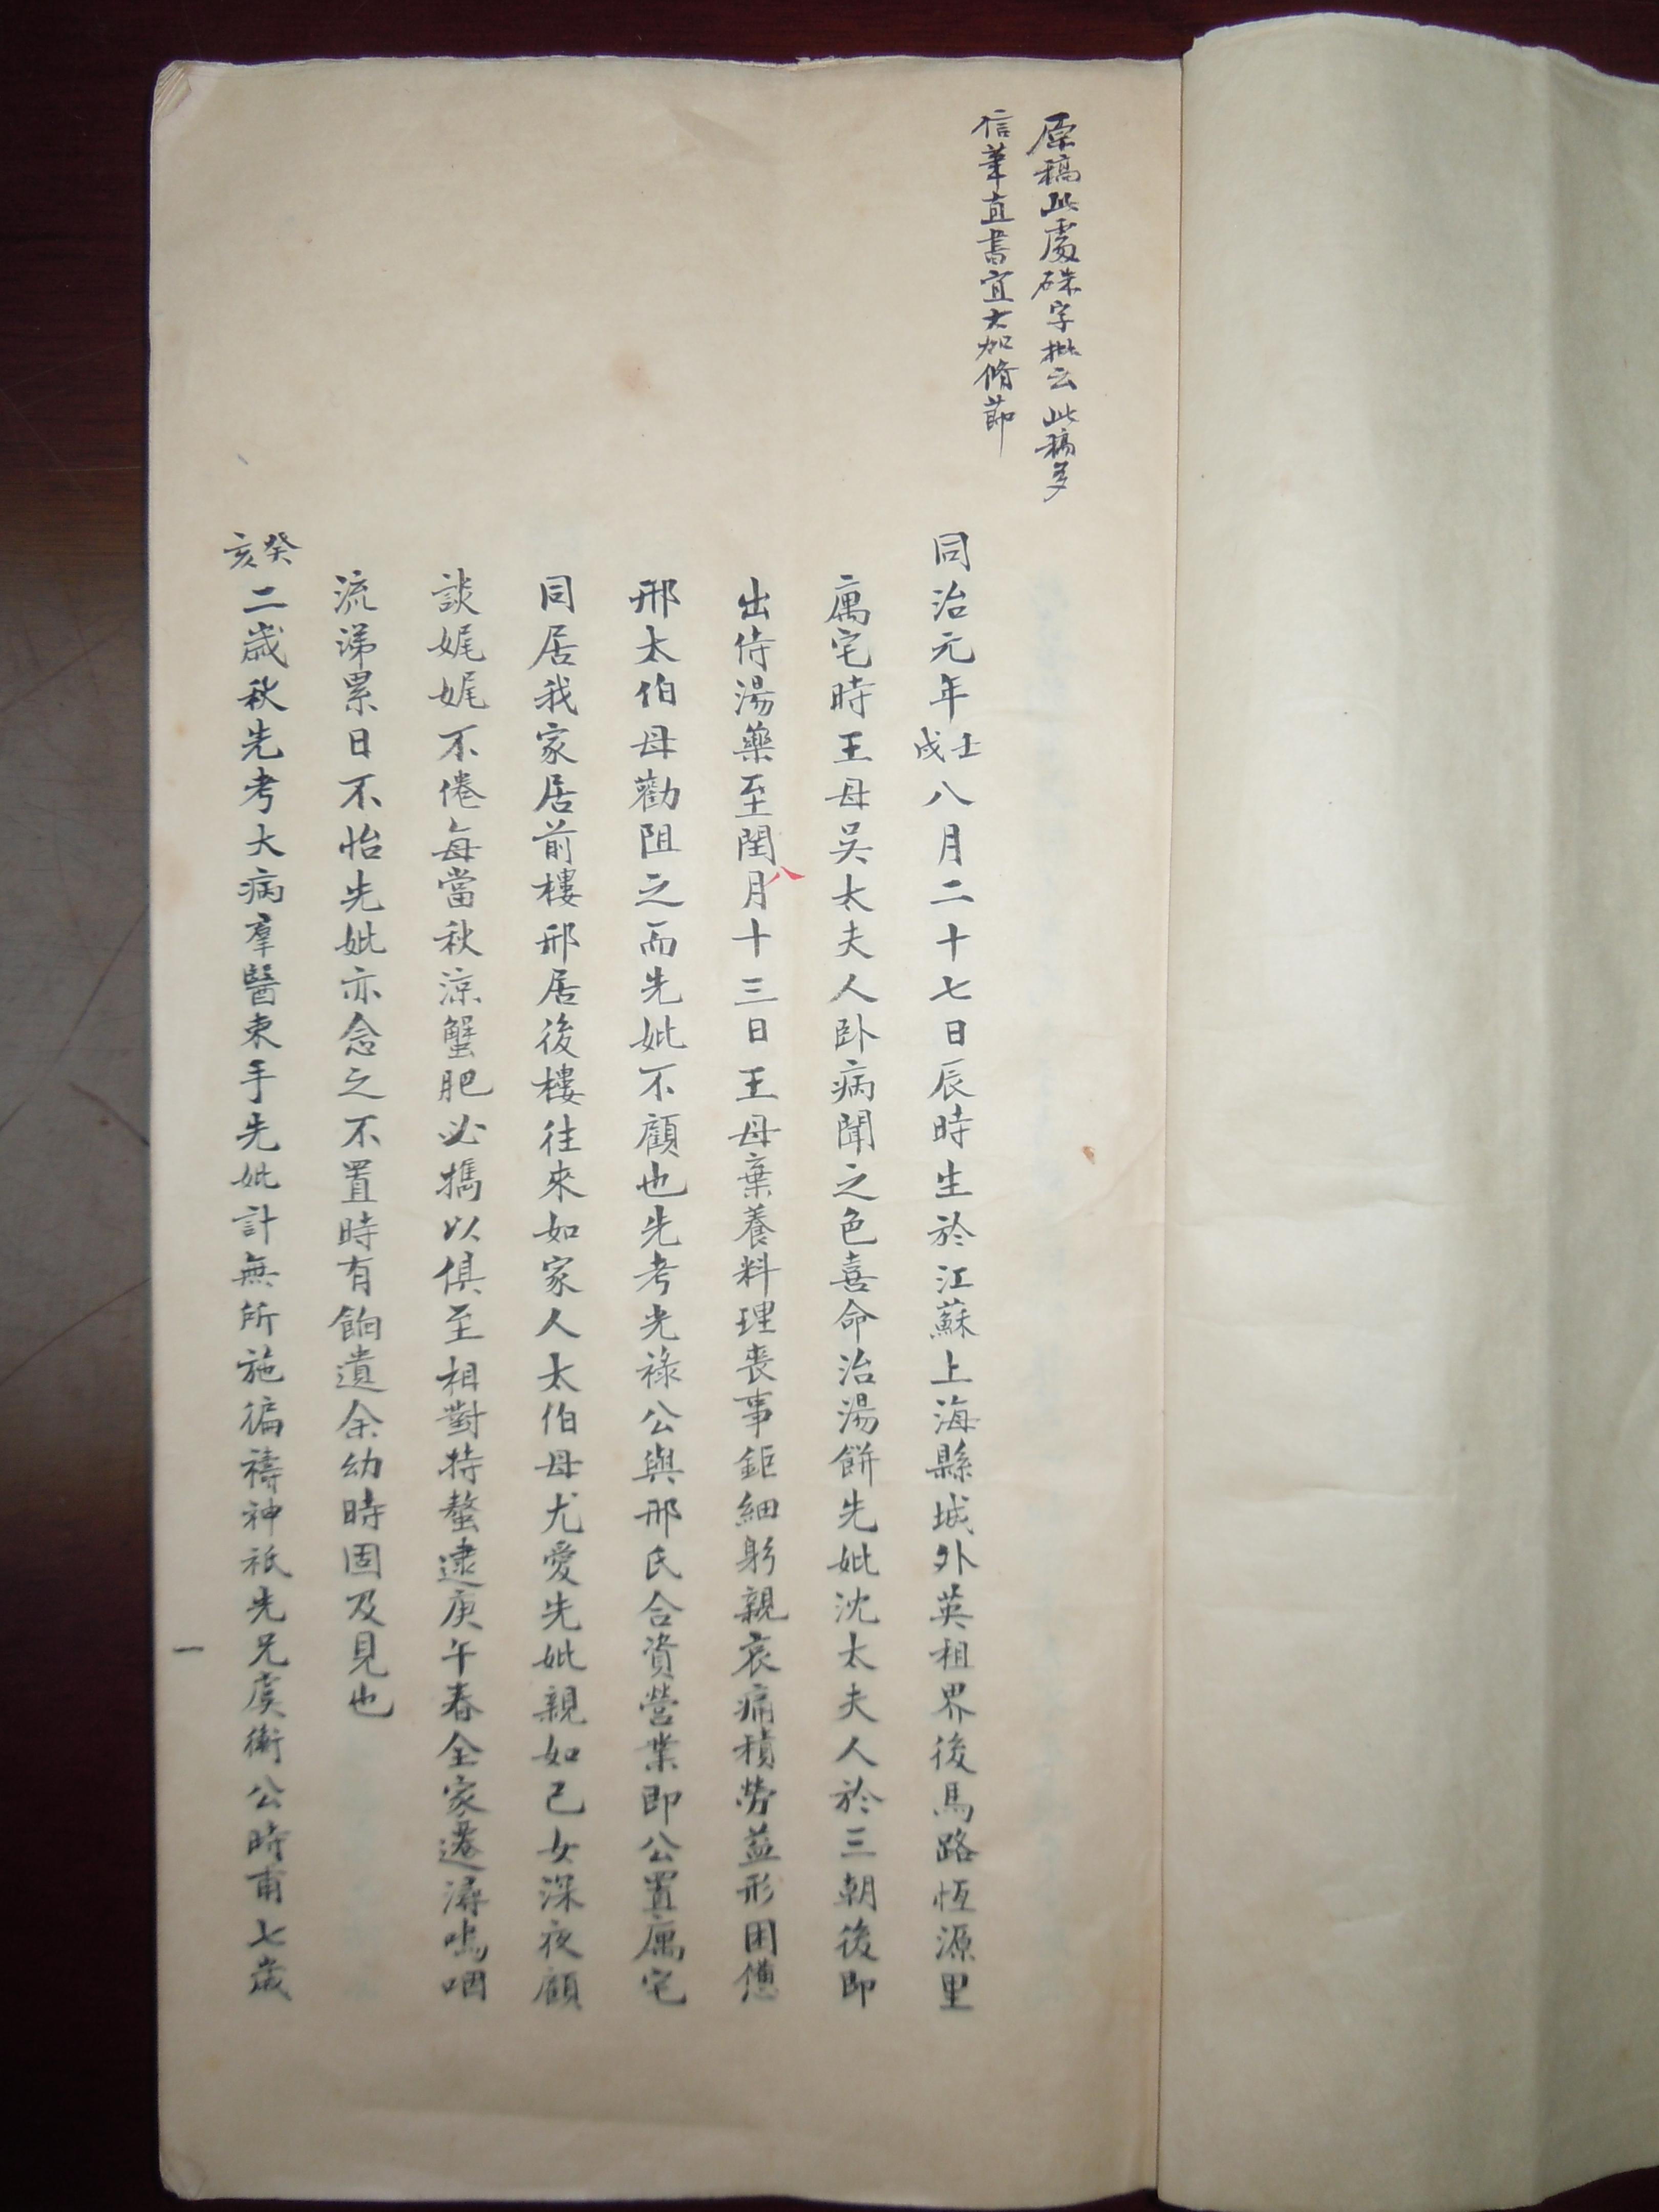 原稿此處硃字批云此稿多
信筆直書宜大加脩節
同治元年壬戌八月二十七日辰時生於江蘇上海縣城外英租界後馬路恆源里
寓宅時王母吳太夫人卧病聞之色喜命治湯餅先妣沈太夫人於三朝後即
出侍湯藥至閏八月十三日王母棄養料理喪事鉅細躬親哀痛積勞益形困憊
邢太伯母勸阻之而先妣不顧也先考光祿公與邢氏合資營業即公置寓宅
同居我家居前樓邢居後樓往來如家人太伯母尤愛先妣親如己女深夜顧
談娓娓不倦每當秋涼蟹肥必攜以俱至相對持螯逮庚午春全家遷潯嗚咽
流涕累日不怡先妣亦念之不置時有餉遺余幼時固及見也
癸亥二歲秋先考大病羣醫束手先妣計無所施徧禱神祇先兄虞衡公時甫七歲
一